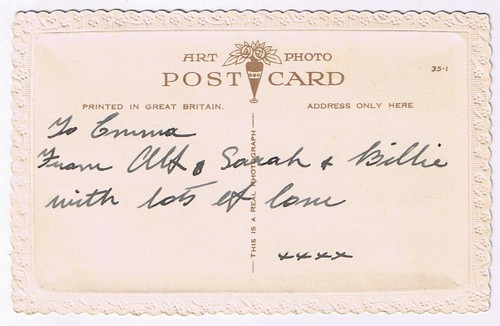 ART PHOTO
POST CARD
35-1
PRINTED IN GREAT BRITAIN.
ADDRESS ONLY HERE
THIS IS A REAL PHOTOGRAPH
To Emma
From Alf, Sarah + Billie
with lots of love
xxxx